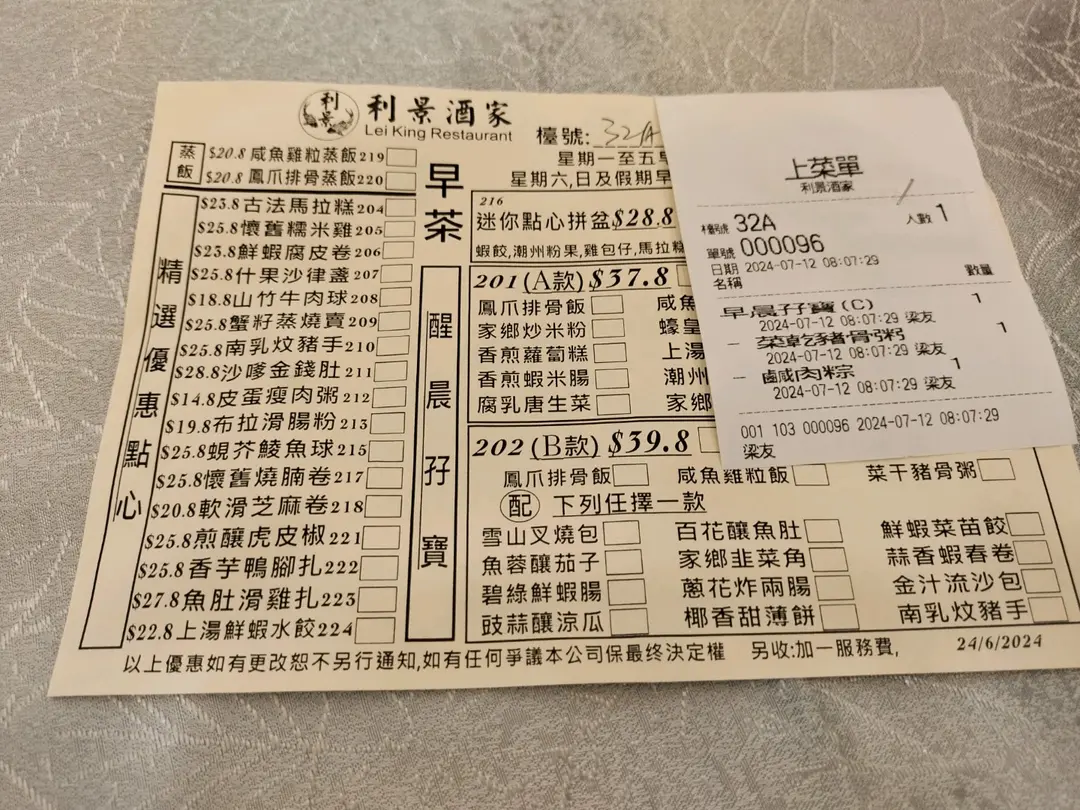 利景
利景酒家
Lei King Restaurant
檯號: 32A
星期一至五早
星期六,日及假期早
蒸飯
$20.8 咸魚雞粒蒸飯 219
$20.8 鳳爪排骨蒸飯 220
精選優惠點心
$23.8 古法馬拉糕 204
$25.8 懷舊糯米雞 205
$23.8 鮮蝦腐皮卷 206
$25.8 什果沙律盞 207
$18.8 山竹牛肉球 208
$25.8 蟹籽蒸燒賣 209
$25.8 南乳炆豬手 210
$28.8 沙嗲金錢肚 211
$14.8 皮蛋瘦肉粥 212
$19.8 布拉滑腸粉 213
$25.8 蜆芥鯪魚球 215
$25.8 懷舊燒腩卷 217
$20.8 軟滑芝麻卷 218
$25.8 煎釀虎皮椒 221
$25.8 香芋鴨腳扎 222
$27.8 魚肚滑雞扎 223
$22.8 上湯鮮蝦水餃 224
早茶
醒晨孖寶
216
迷你點心拼盆 $28.8
蝦餃,潮州粉果,雞包仔,馬拉糕
201 (A款) $37.8
鳳爪排骨飯 咸魚
家鄉炒米粉 蠔皇
香煎蘿蔔糕 上湯
香煎蝦米腸 潮州
腐乳唐生菜 家鄉
202 (B款) $39.8
鳳爪排骨飯 咸魚雞粒飯 菜干豬骨粥
配 下列任擇一款
雪山叉燒包 百花釀魚肚 鮮蝦菜苗餃
魚蓉釀茄子 家鄉韭菜角 蒜香蝦春卷
碧綠鮮蝦腸 蔥花炸兩腸 金汁流沙包
豉蒜釀涼瓜 椰香甜薄餅 南乳炆豬手
以上優惠如有更改恕不另行通知,如有任何爭議本公司保最終決定權 另收:加一服務費, 24/6/2024
上菜單
利景酒家
檯號 32A 人數 1
單號 000096
日期 2024-07-12 08:07:29
名稱 數量
早晨孖寶(C) 1
2024-07-12 08:07:29 梁友
- 菜乾豬骨粥 1
2024-07-12 08:07:29 梁友
- 鹹肉粽 1
2024-07-12 08:07:29 梁友
001 103 000096 2024-07-12 08:07:29
梁友